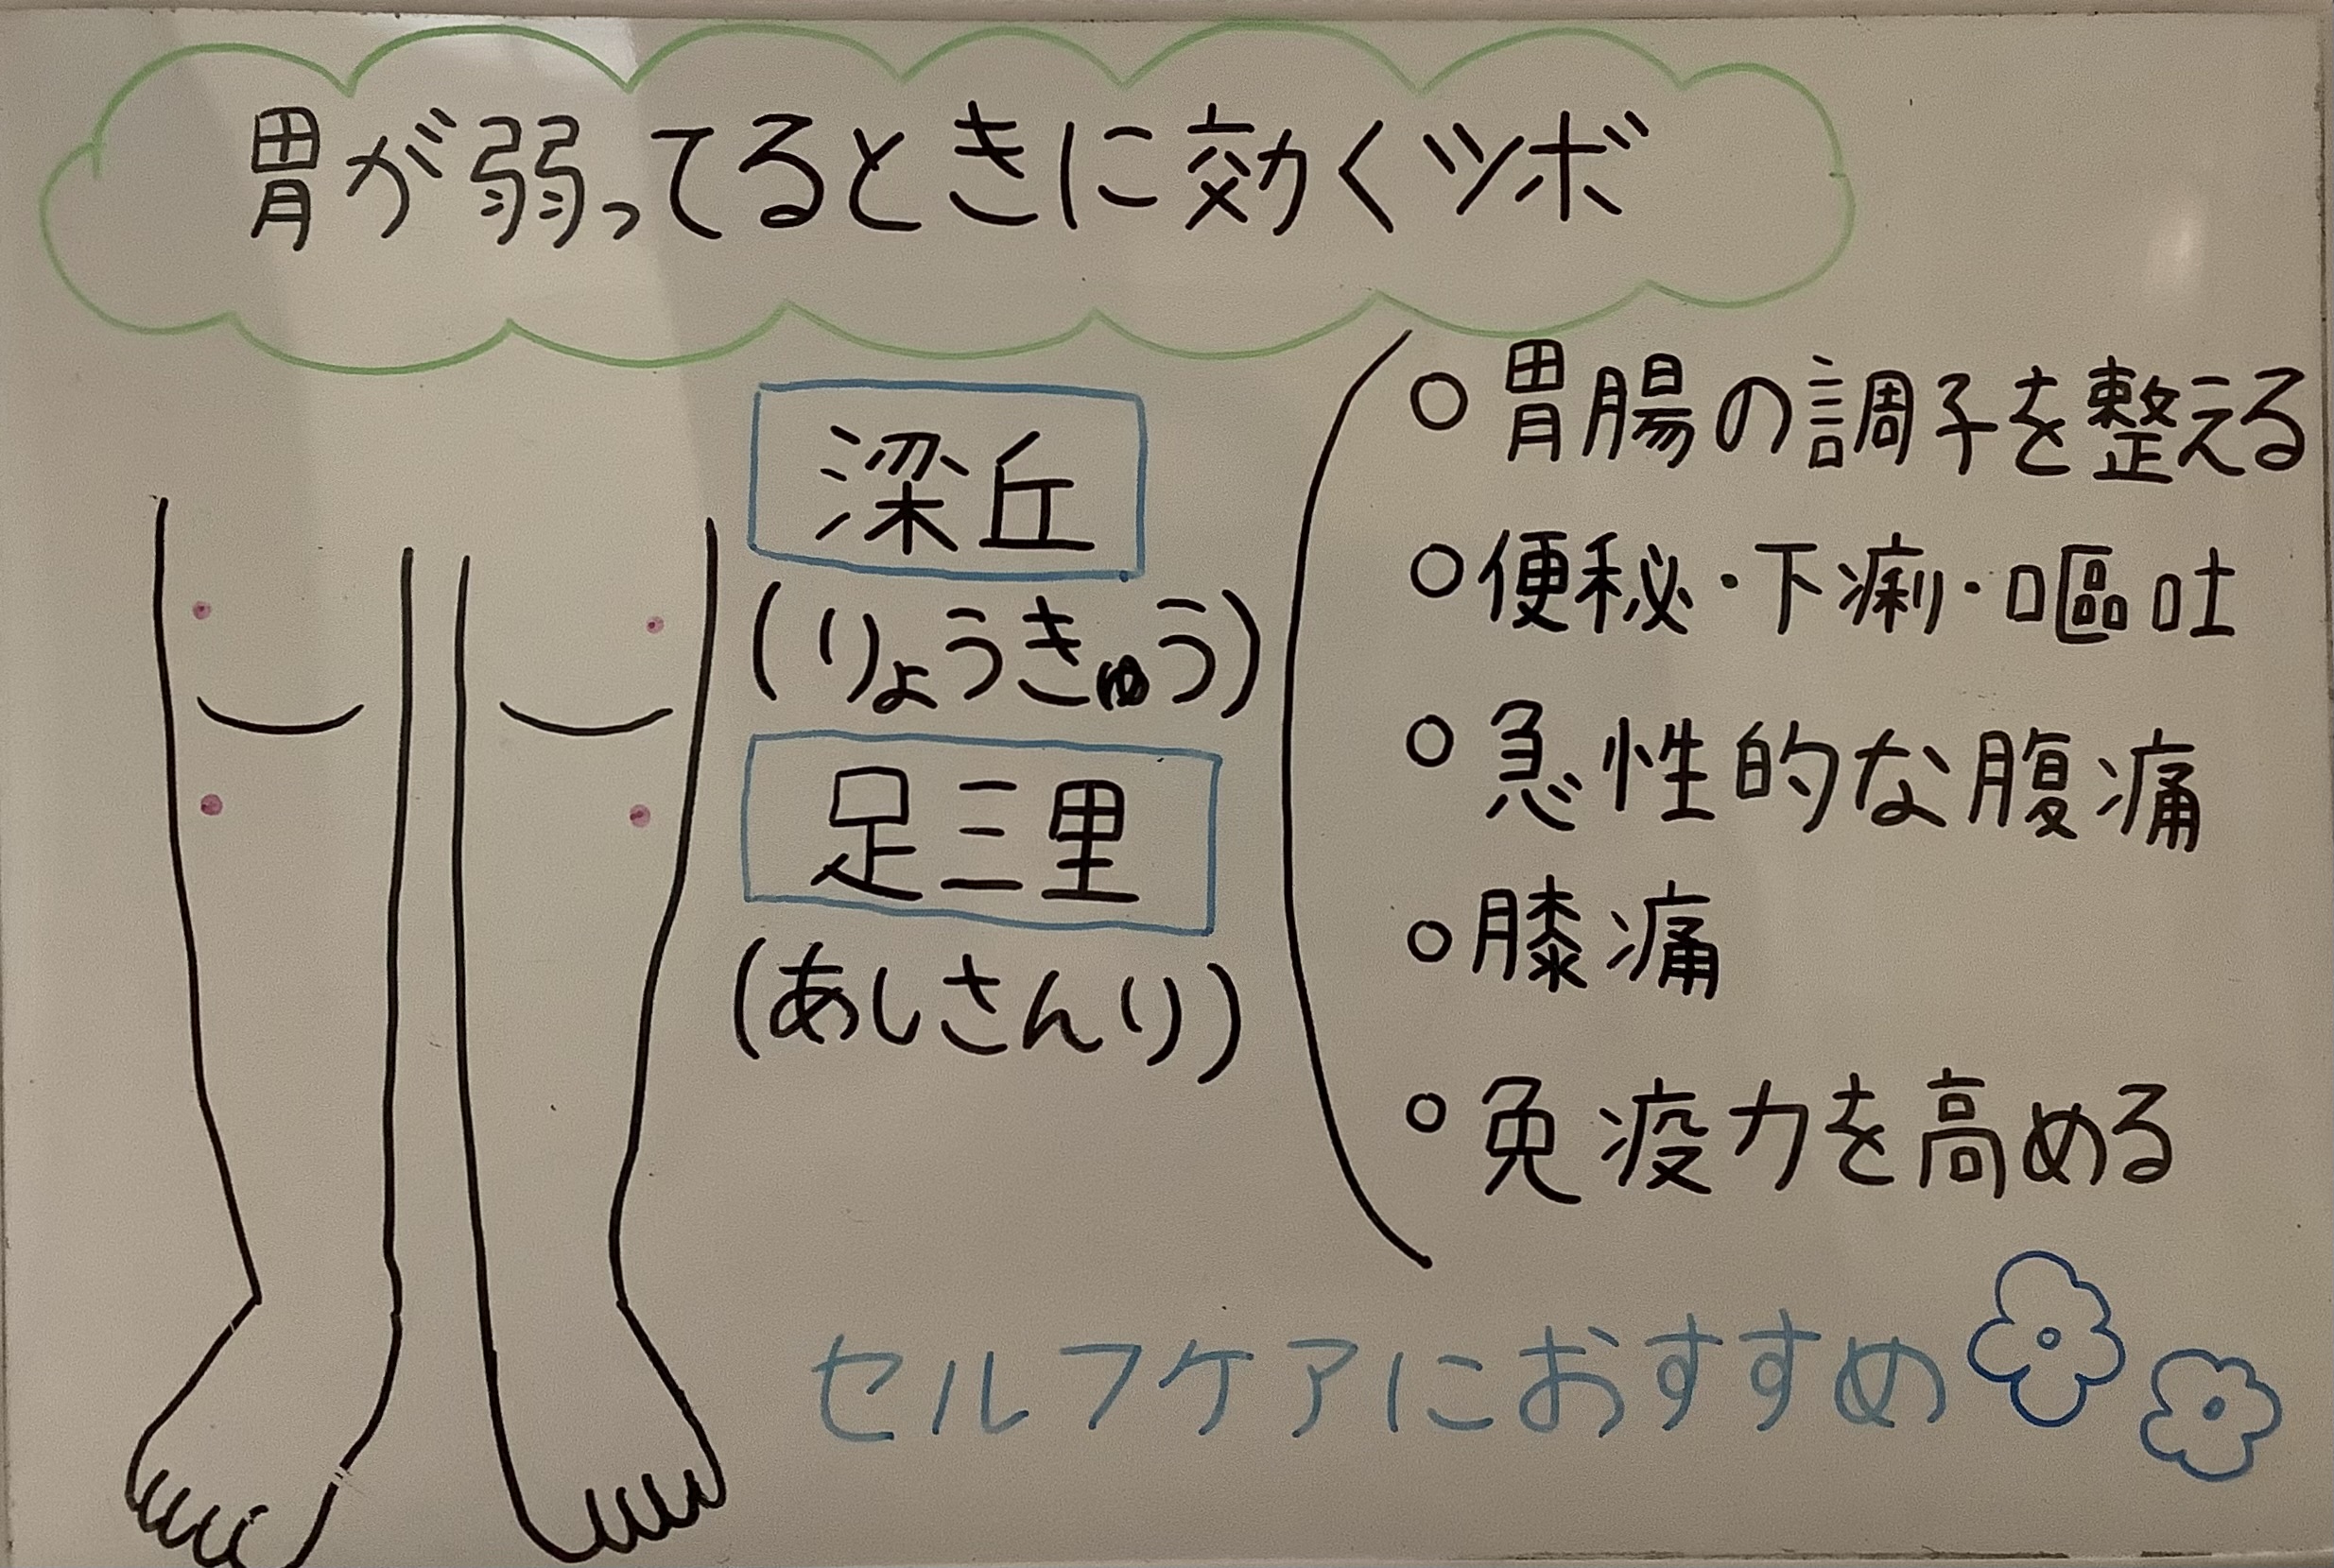 胃が弱ってるときに効くツボ
梁丘
(りょうきゅう)
足三里
(あしさんり)
○胃腸の調子を整える
○便秘・下痢・嘔吐
○急性的な腹痛
○膝痛
○免疫力を高める
セルフケアにおすすめ